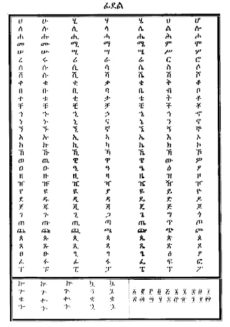 ፊደል
ሀ ሁ ሂ ሃ ሄ ህ ሆ
ለ ሉ ሊ ላ ሌ ል ሎ
ሐ ሑ ሒ ሓ ሔ ሕ ሖ
መ ሙ ሚ ማ ሜ ም ሞ
ሠ ሡ ሢ ሣ ሤ ሥ ሦ
ረ ሩ ሪ ራ ሬ ር ሮ
ሰ ሱ ሲ ሳ ሴ ስ ሶ
ሸ ሹ ሺ ሻ ሼ ሽ ሾ
ቀ ቁ ቂ ቃ ቄ ቅ ቆ
በ ቡ ቢ ባ ቤ ብ ቦ
ተ ቱ ቲ ታ ቴ ት ቶ
ቸ ቹ ቺ ቻ ቼ ች ቾ
ኀ ኁ ኂ ኃ ኄ ኅ ኆ
ነ ኑ ኒ ና ኔ ን ኖ
ኘ ኙ ኚ ኛ ኜ ኝ ኞ
አ ኡ ኢ ኣ ኤ እ ኦ
ከ ኩ ኪ ካ ኬ ክ ኮ
ኸ ኹ ኺ ኻ ኼ ኽ ኾ
ወ ዉ ዊ ዋ ዌ ው ዎ
ዐ ዑ ዒ ዓ ዔ ዕ ዖ
ዘ ዙ ዚ ዛ ዜ ዝ ዞ
ዠ ዡ ዢ ዣ ዤ ዥ ዦ
የ ዩ ዪ ያ ዬ ይ ዮ
ደ ዱ ዲ ዳ ዴ ድ ዶ
ጀ ጁ ጂ ጃ ጄ ጅ ጆ
ገ ጉ ጊ ጋ ጌ ግ ጎ
ጠ ጡ ጢ ጣ ጤ ጥ ጦ
ጨ ጩ ጪ ጫ ጬ ጭ ጮ
ጰ ጱ ጲ ጳ ጴ ጵ ጶ
ጸ ጹ ጺ ጻ ጼ ጽ ጾ
ፀ ፁ ፂ ፃ ፄ ፅ ፆ
ፈ ፉ ፊ ፋ ፌ ፍ ፎ
ፐ ፑ ፒ ፓ ፔ ፕ ፖ
፩ ፪ ፫ ፬ ፭ ፮ ፯ ፰ ፱ ፲
፳ ፴ ፵ ፶ ፷ ፸ ፹ ፺ ፻ ፼